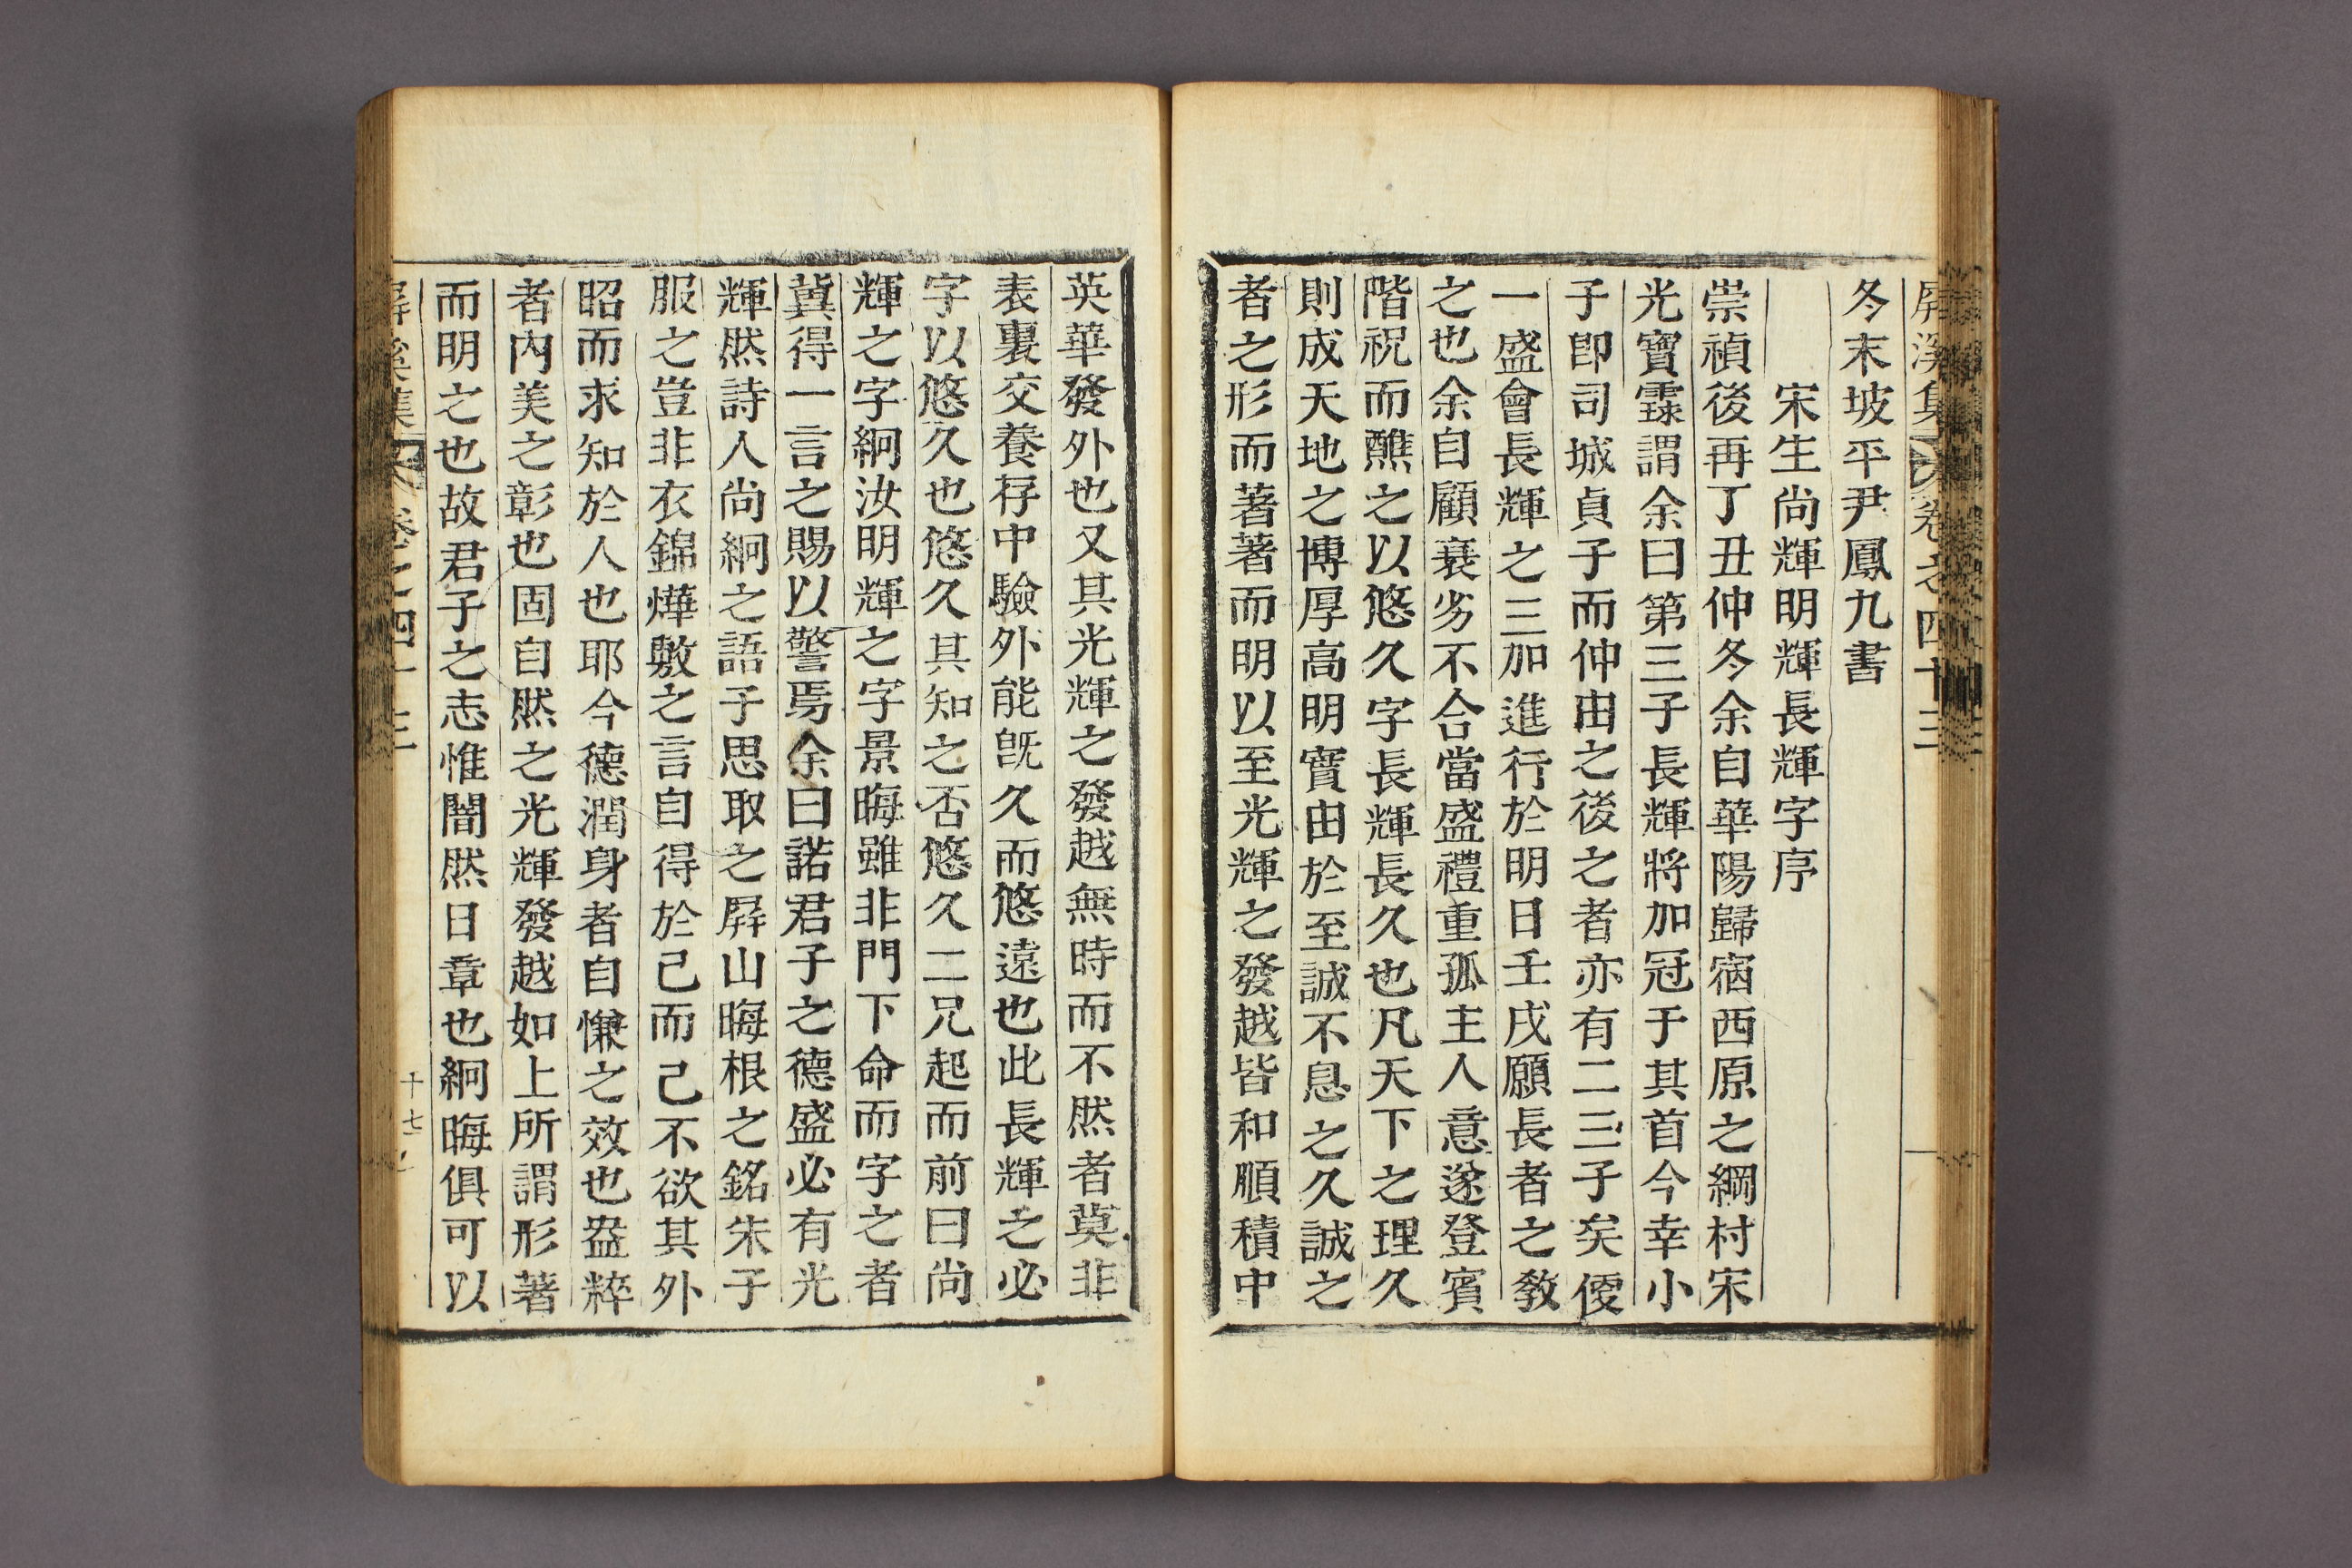 屛溪集 卷之四十三
冬末坡平尹鳳九書
宋生尚輝明輝長輝字序
崇禎後再丁丑仲冬余自華陽歸宿西原之綱村宋
光寶霂謂余曰第三子長輝將加冠于其首今幸小
子卽司城貞子而仲由之後之者亦有二三子矣僾
一盛會長輝之三加進行於明日壬戌願長者之敎
之也余自顧衰劣不合當盛禮重孤主人意遂登賓
階祝而醮之以悠久字長輝長久也凡天下之理久
則成天地之博厚高明實由於至誠不息之久誠之
者之形而著著而明以至光輝之發越皆和順積中
英華發外也又其光輝之發越無時而不然者莫非
表裏交養存中驗外能旣久而悠遠也此長輝之必
字以悠久也悠久其知之否悠久二兄起而前曰尚
輝之字絅汝明輝之字景晦雖非門下命而字之者
冀得一言之賜以警焉余曰諾君子之德盛必有光
輝然詩人尚絅之語子思取之屛山晦根之銘朱子
服之豈非衣錦燁敷之言自得於己而己不欲其外
昭而求知於人也耶今德潤身者自慊之效也盎粹
者內美之彰也固自然之光輝發越如上所謂形著
而明之也故君子之志惟闇然日章也絅晦俱可以
屛溪集 卷之四十三 十七